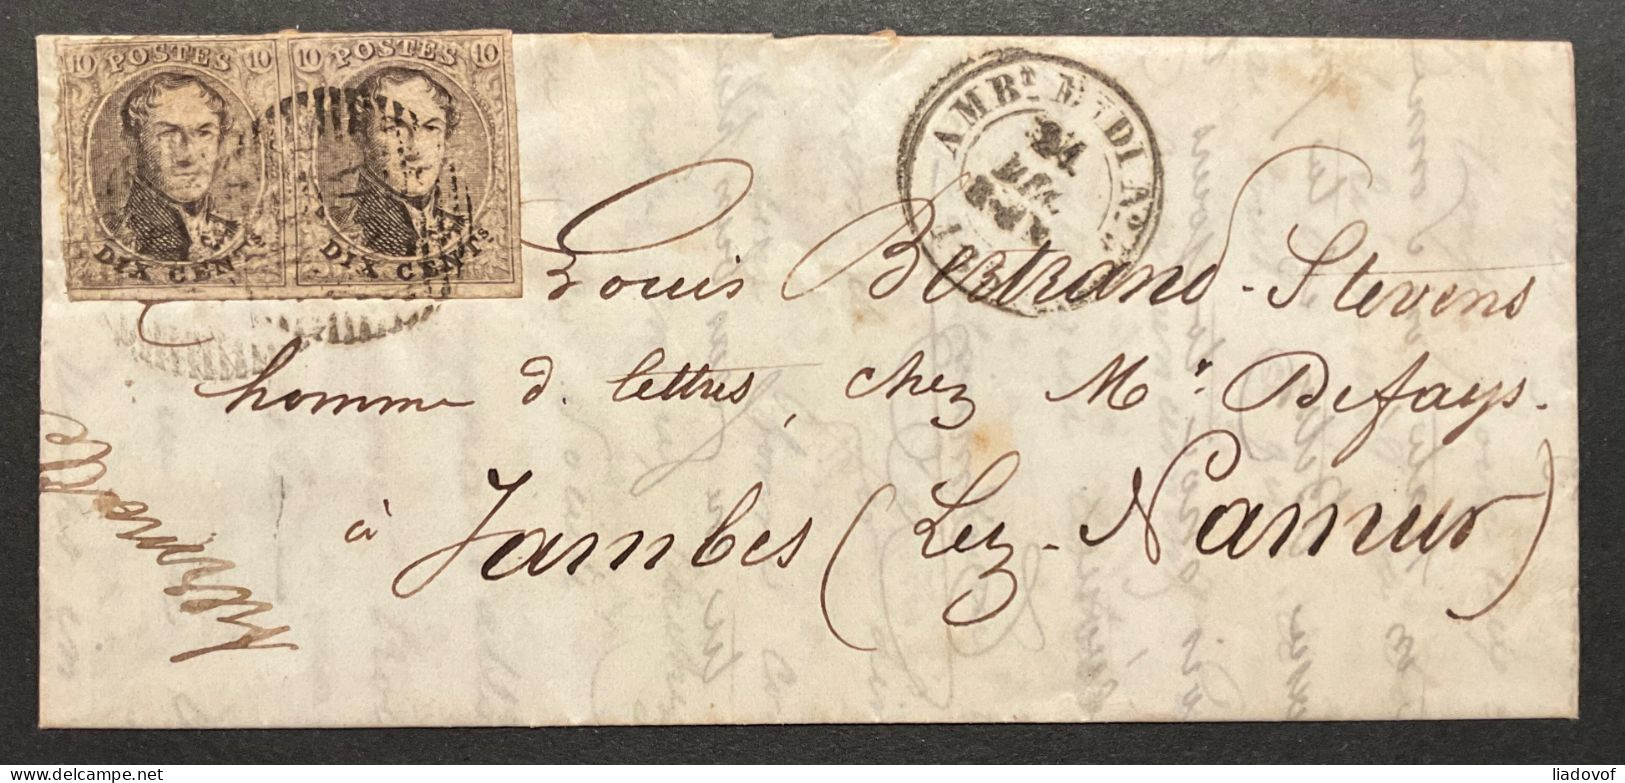 10 POSTES 10
DIX CENTS
10 POSTES 10
DIX CENTS
AMBT M. DI No
24
Louis Bertrand-Stevens
homme d. lettres, chez Mr. Defays.
à Jambes (Lez-Namur)
(C) delcampe.net
liadovof